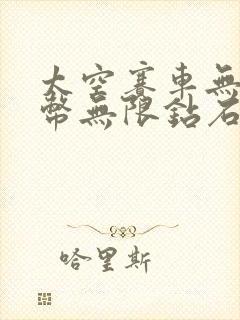 太空賽車無
幣無限鉆石
哈里斯